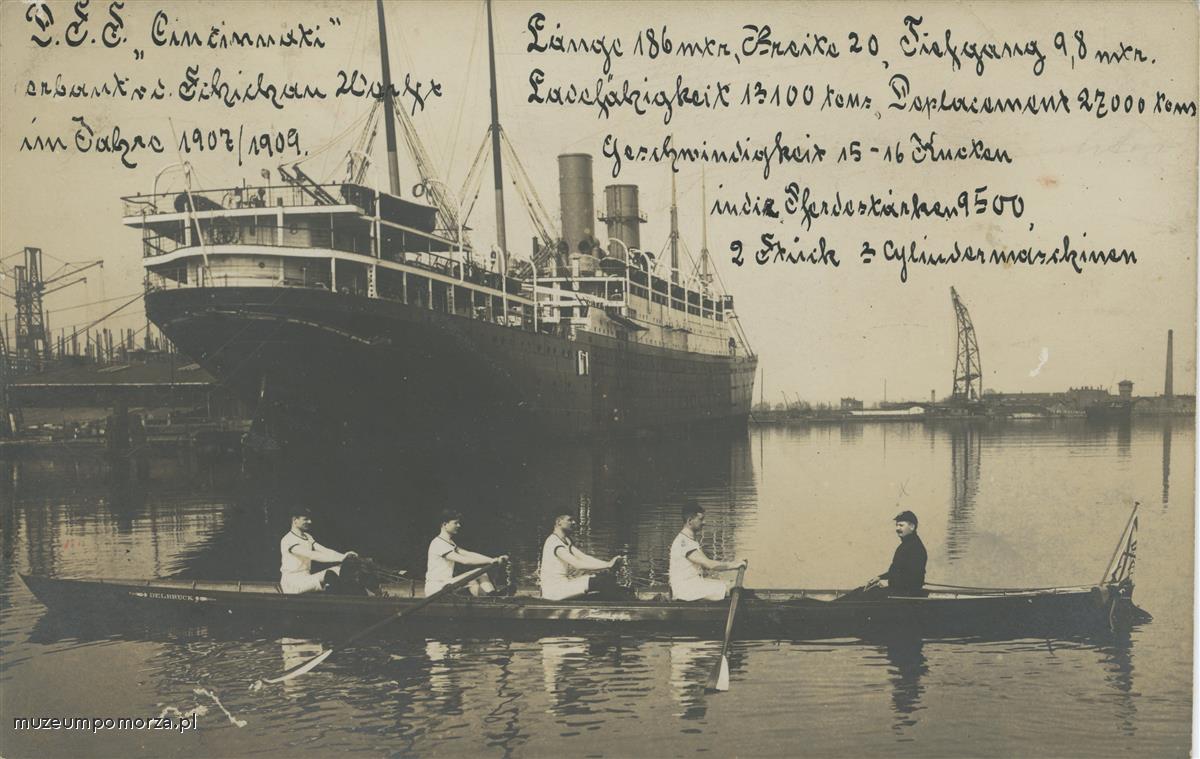 D.S.S. „Cincinnati"
erbaut v. d. Schichau Werft
im Jahre 1907/1909.
Länge 186 mtr, Breite 20, Tiefgang 9,8 mtr.
Ladefähigkeit 13100 tons, Deplacement 27000 tons
Geschwindigkeit 15-16 Knoten
indiz. Pferdestärken 9500,
2 Stück 3 Cylindermaschinen
DELBRÜCK
muzeumpomorza.pl